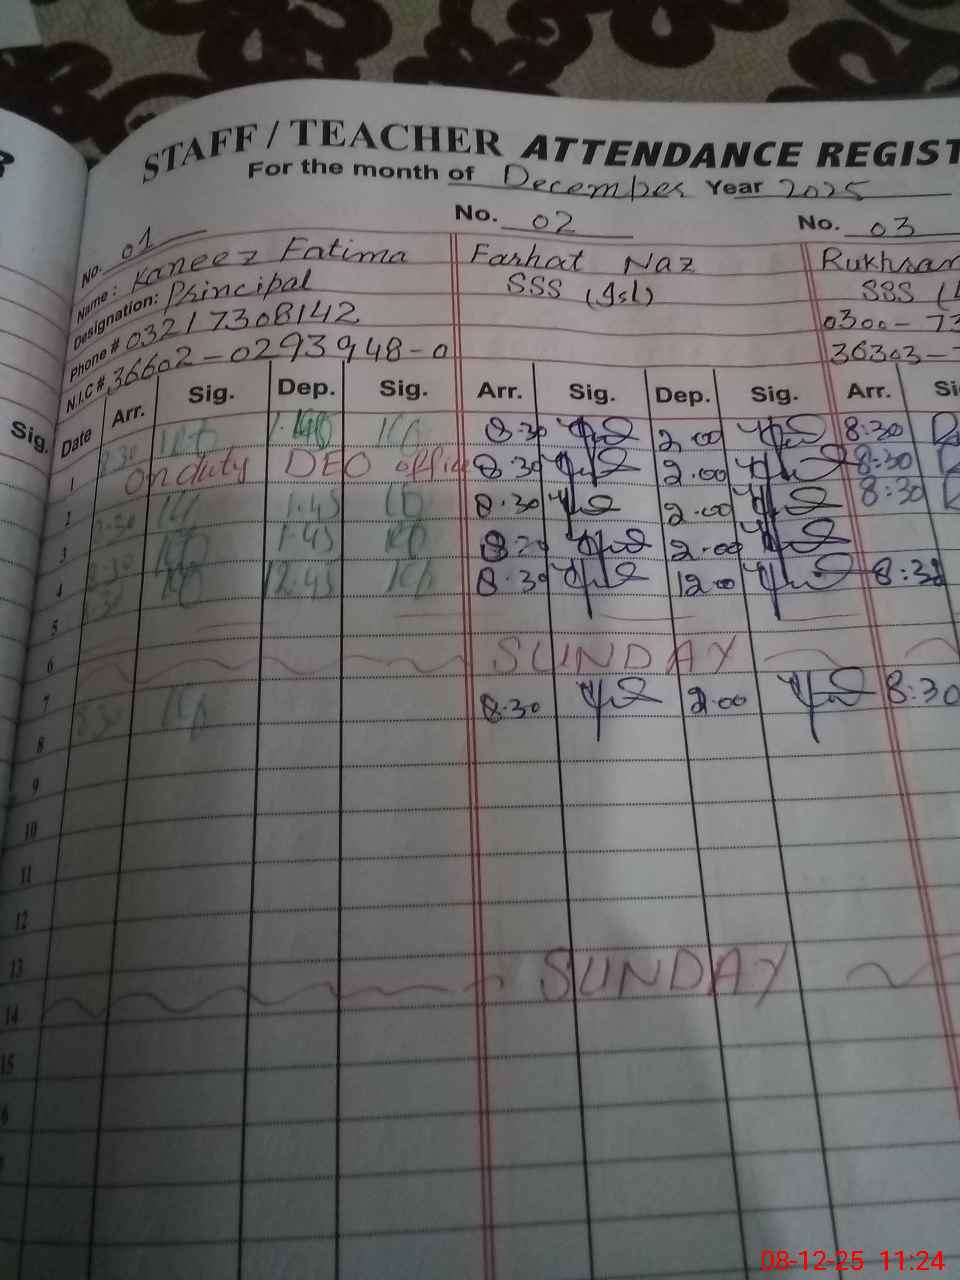 STAFF / TEACHER ATTENDANCE REGIST
For the month of December Year 2025
No. 01 No. 02 No. 03
Name: Kaneez Fatima Farhat Naz Rukhsan
Designation: Principal SSS (Isl) SSS (
Phone # 03217308142 0300-73
N.I.C # 36602-0293948-0 36303-
Sig. Date Arr. Sig. Dep. Sig. Arr. Sig. Dep. Sig. Arr. Si
1 8:30 1.40 8.30 2.00 8:30
2 On duty DEO office 8.30 2.00 8:30
3 8:30 1.45 8.30 2.00 8:30
4 8:30 1.45 8:30 2.00
5 8:30 12.45 8.30 12.00 8:30
6
7 SUNDAY
8 8:30 8.30 2.00 8:30
9
10
11
12
13
14 SUNDAY
15
6
08-12-25 11:24